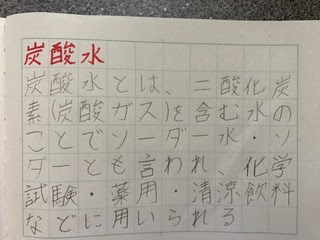 炭酸水
炭酸水とは、二酸化炭
素(炭酸ガス)を含む水の
ことでソーダー水・ソ
ダーとも言われ、化学
試験・薬用・清涼飲料
などに用いられる